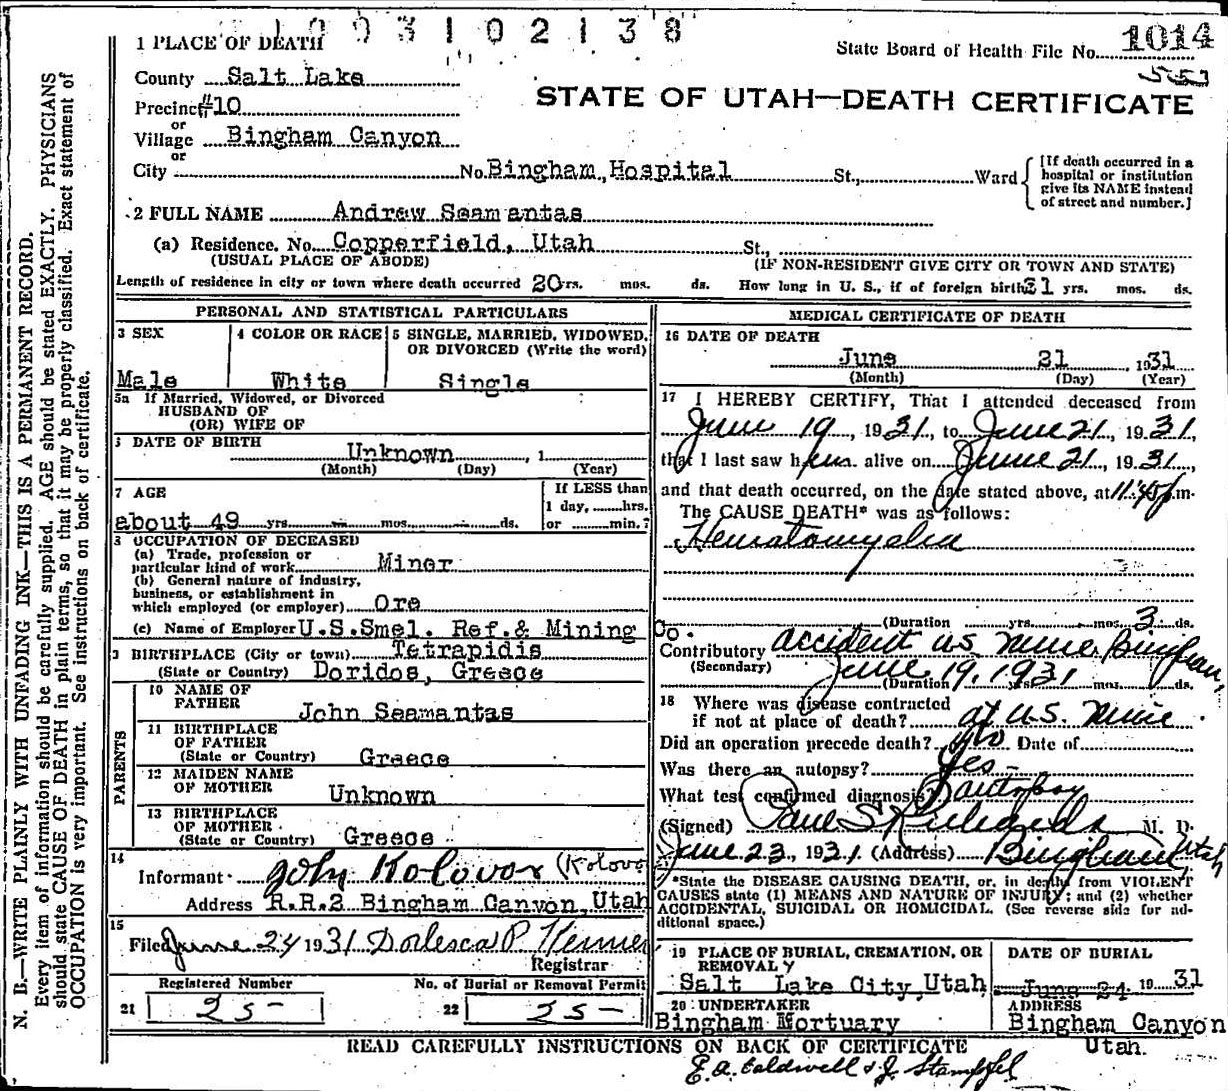 1003102138
1 PLACE OF DEATH
State Board of Health File No. 1014
County Salt Lake
STATE OF UTAH—DEATH CERTIFICATE
Precinct #10
or
Village Bingham Canyon
or
City No. Bingham Hospital St., Ward
[If death occurred in a
hospital or institution
give its NAME instead
of street and number.]
2 FULL NAME Andrew Seamantas
(a) Residence. No. Copperfield, Utah St.,
(USUAL PLACE OF ABODE) (IF NON-RESIDENT GIVE CITY OR TOWN AND STATE)
Length of residence in city or town where death occurred 20 yrs. mos. ds. How long in U. S., if of foreign birth 21 yrs. mos. ds.
PERSONAL AND STATISTICAL PARTICULARS
3 SEX
Male
4 COLOR OR RACE
White
5 SINGLE, MARRIED, WIDOWED,
OR DIVORCED (Write the word)
Single
5a If Married, Widowed, or Divorced
HUSBAND OF
(OR) WIFE OF
DATE OF BIRTH Unknown, 1
(Month) (Day) (Year)
7 AGE
about 49 yrs. — mos. — ds.
If LESS than
1 day, hrs.
or min.?
8 OCCUPATION OF DECEASED
(a) Trade, profession or
particular kind of work Miner
(b) General nature of industry,
business, or establishment in
which employed (or employer) Ore
(c) Name of Employer U.S.Smel. Ref.& Mining Co.
BIRTHPLACE (City or town) Tetrapidis
(State or Country) Doridos, Greece
PARENTS
10 NAME OF
FATHER John Seamantas
11 BIRTHPLACE
OF FATHER
(State or Country) Greece
12 MAIDEN NAME
OF MOTHER Unknown
13 BIRTHPLACE
OF MOTHER
(State or Country) Greece
14
Informant John Kolovos (Kolovo
Address R.R.2 Bingham Canyon, Utah
15
Filed June 24 1931
Registrar
Registered Number No. of Burial or Removal Permit
21 25- 22 25-
MEDICAL CERTIFICATE OF DEATH
16 DATE OF DEATH
June 21, 1931
(Month) (Day) (Year)
17 I HEREBY CERTIFY, That I attended deceased from
June 19, 1931, to June 21, 1931,
that I last saw him alive on June 21, 1931,
and that death occurred, on the date stated above, at 11:45 p.m.
The CAUSE DEATH* was as follows:
Hematomyelia
(Duration yrs. mos. 3 ds.
Contributory accident U.S. Mine Bingham,
(Secondary) June 19, 1931
(Duration yrs. mos. ds.
18 Where was disease contracted
if not at place of death? at U.S. Mine
Did an operation precede death? No Date of
Was there an autopsy? Yes-
What test confirmed diagnosis? autopsy
(Signed) Paul S Richards M. D.
June 23, 1931. (Address) Bingham, Utah
*State the DISEASE CAUSING DEATH, or, in death from VIOLENT
CAUSES state (1) MEANS AND NATURE OF INJURY; and (2) whether
ACCIDENTAL, SUICIDAL OR HOMICIDAL. (See reverse side for ad-
ditional space.)
19 PLACE OF BURIAL, CREMATION, OR
REMOVAL
Salt Lake City, Utah
DATE OF BURIAL
June 24 1931
20 UNDERTAKER
Bingham Mortuary
ADDRESS
Bingham Canyon
Utah.
READ CAREFULLY INSTRUCTIONS ON BACK OF CERTIFICATE
N. B.—WRITE PLAINLY WITH UNFADING INK—THIS IS A PERMANENT RECORD.
Every item of information should be carefully supplied. AGE should be stated EXACTLY. PHYSICIANS
should state CAUSE OF DEATH in plain terms, so that it may be properly classified. Exact statement of
OCCUPATION is very important. See instructions on back of certificate.